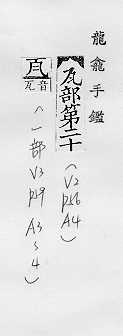 龍龕手鑑
瓦部第二十
(V2
A4)
音瓦
(一部 V3
A3~4)